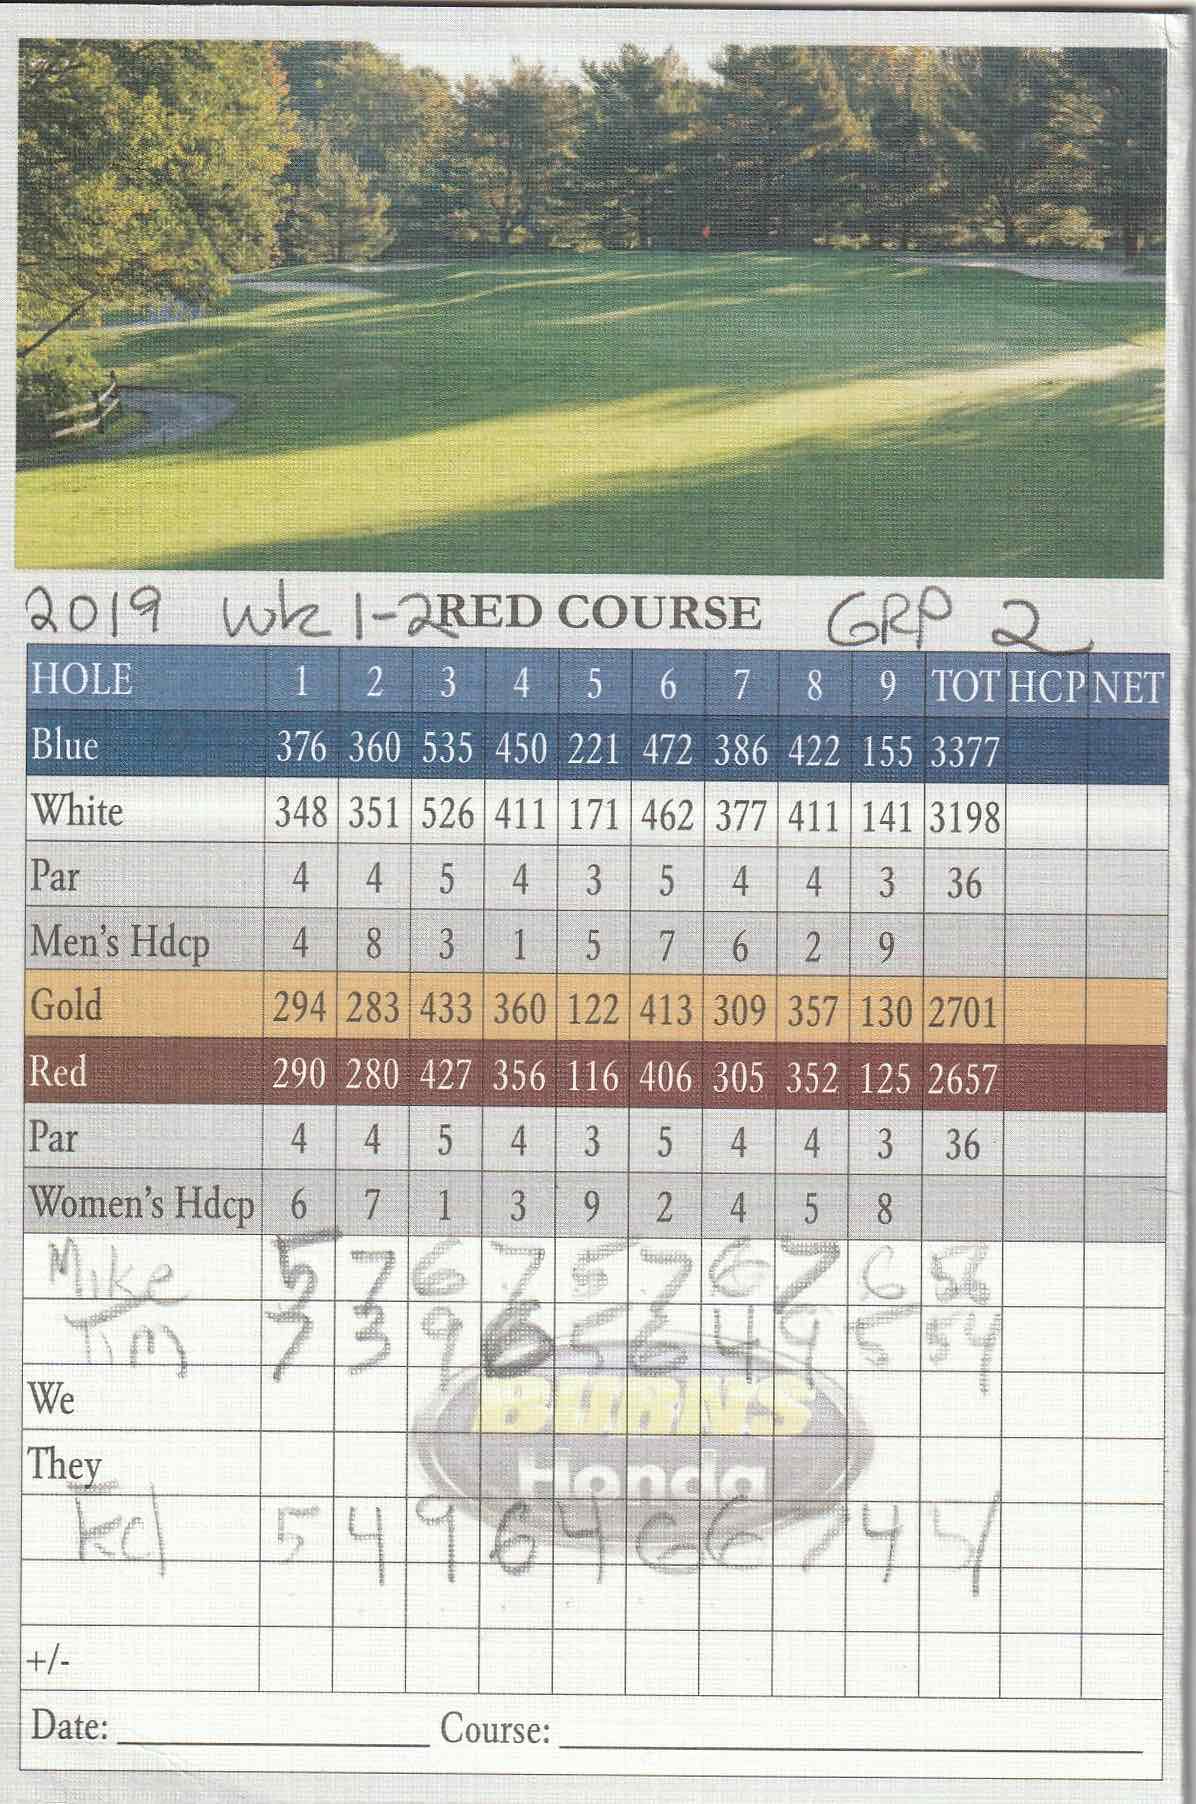 2019 Wk 1-2 RED COURSE GRP 2
HOLE 1 2 3 4 5 6 7 8 9 TOT HCP NET
Blue 376 360 535 450 221 472 386 422 155 3377
White 348 351 526 411 171 462 377 411 141 3198
Par 4 4 5 4 3 5 4 4 3 36
Men's Hdcp 4 8 3 1 5 7 6 2 9
Gold 294 283 433 360 122 413 309 357 130 2701
Red 290 280 427 356 116 406 305 352 125 2657
Par 4 4 5 4 3 5 4 4 3 36
Women's Hdcp 6 7 1 3 9 2 4 5 8
Mike 5 7 6 7 5 7 6 7 6 56
Tim 7 3 9 6 5 6 4 9 5 54
We
BURNS
They
Honda
Ed 5 4 9 6 4 6 6 7 4 51
+/-
Date: Course: